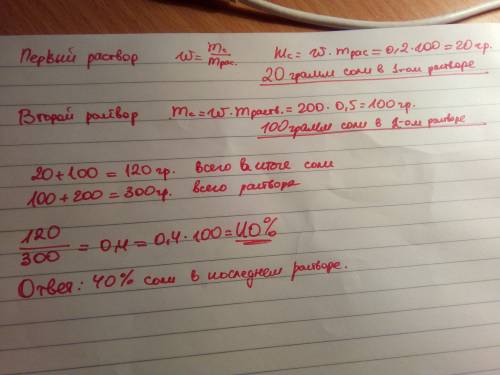 Первый раствор w = mc/mрас. mc = w · mрас = 0,2 · 100 = 20 гр.
20 грамм соли в 1-ом растворе
Второй раствор mc = w · mраств. = 200 · 0,5 = 100 гр.
100 грамм соли в 2-ом растворе
20 + 100 = 120 гр. всего в итоге соли
100 + 200 = 300 гр. всего раствора
120/300 = 0,4 = 0,4 · 100 = 40%
Ответ: 40% соли в последнем растворе.